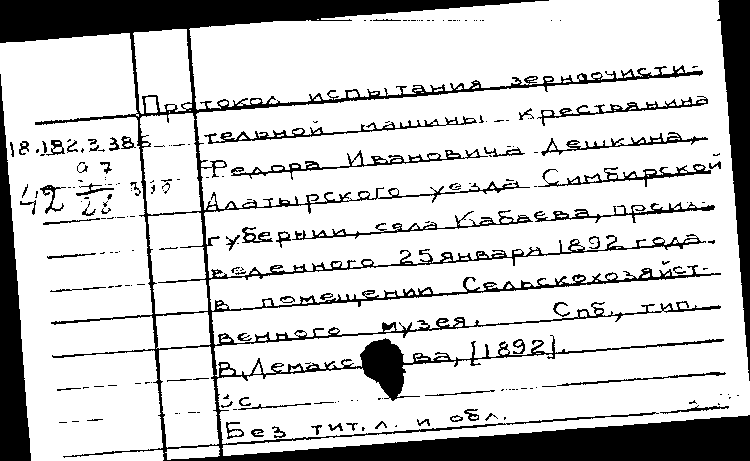 Протокол испытания зерноочисти-
18.182.3.386 тельной машины крестьянина
Федора Ивановича Дешкина,
42 Алатырского уезда Симбирской
губернии, села Кабаева, произ-
веденного 25 января 1892 года
в помещении Сельскохозяйст-
венного музея. Спб., тип.
В. Демакова, [1892].
3с.
Без тит. л. и обл.